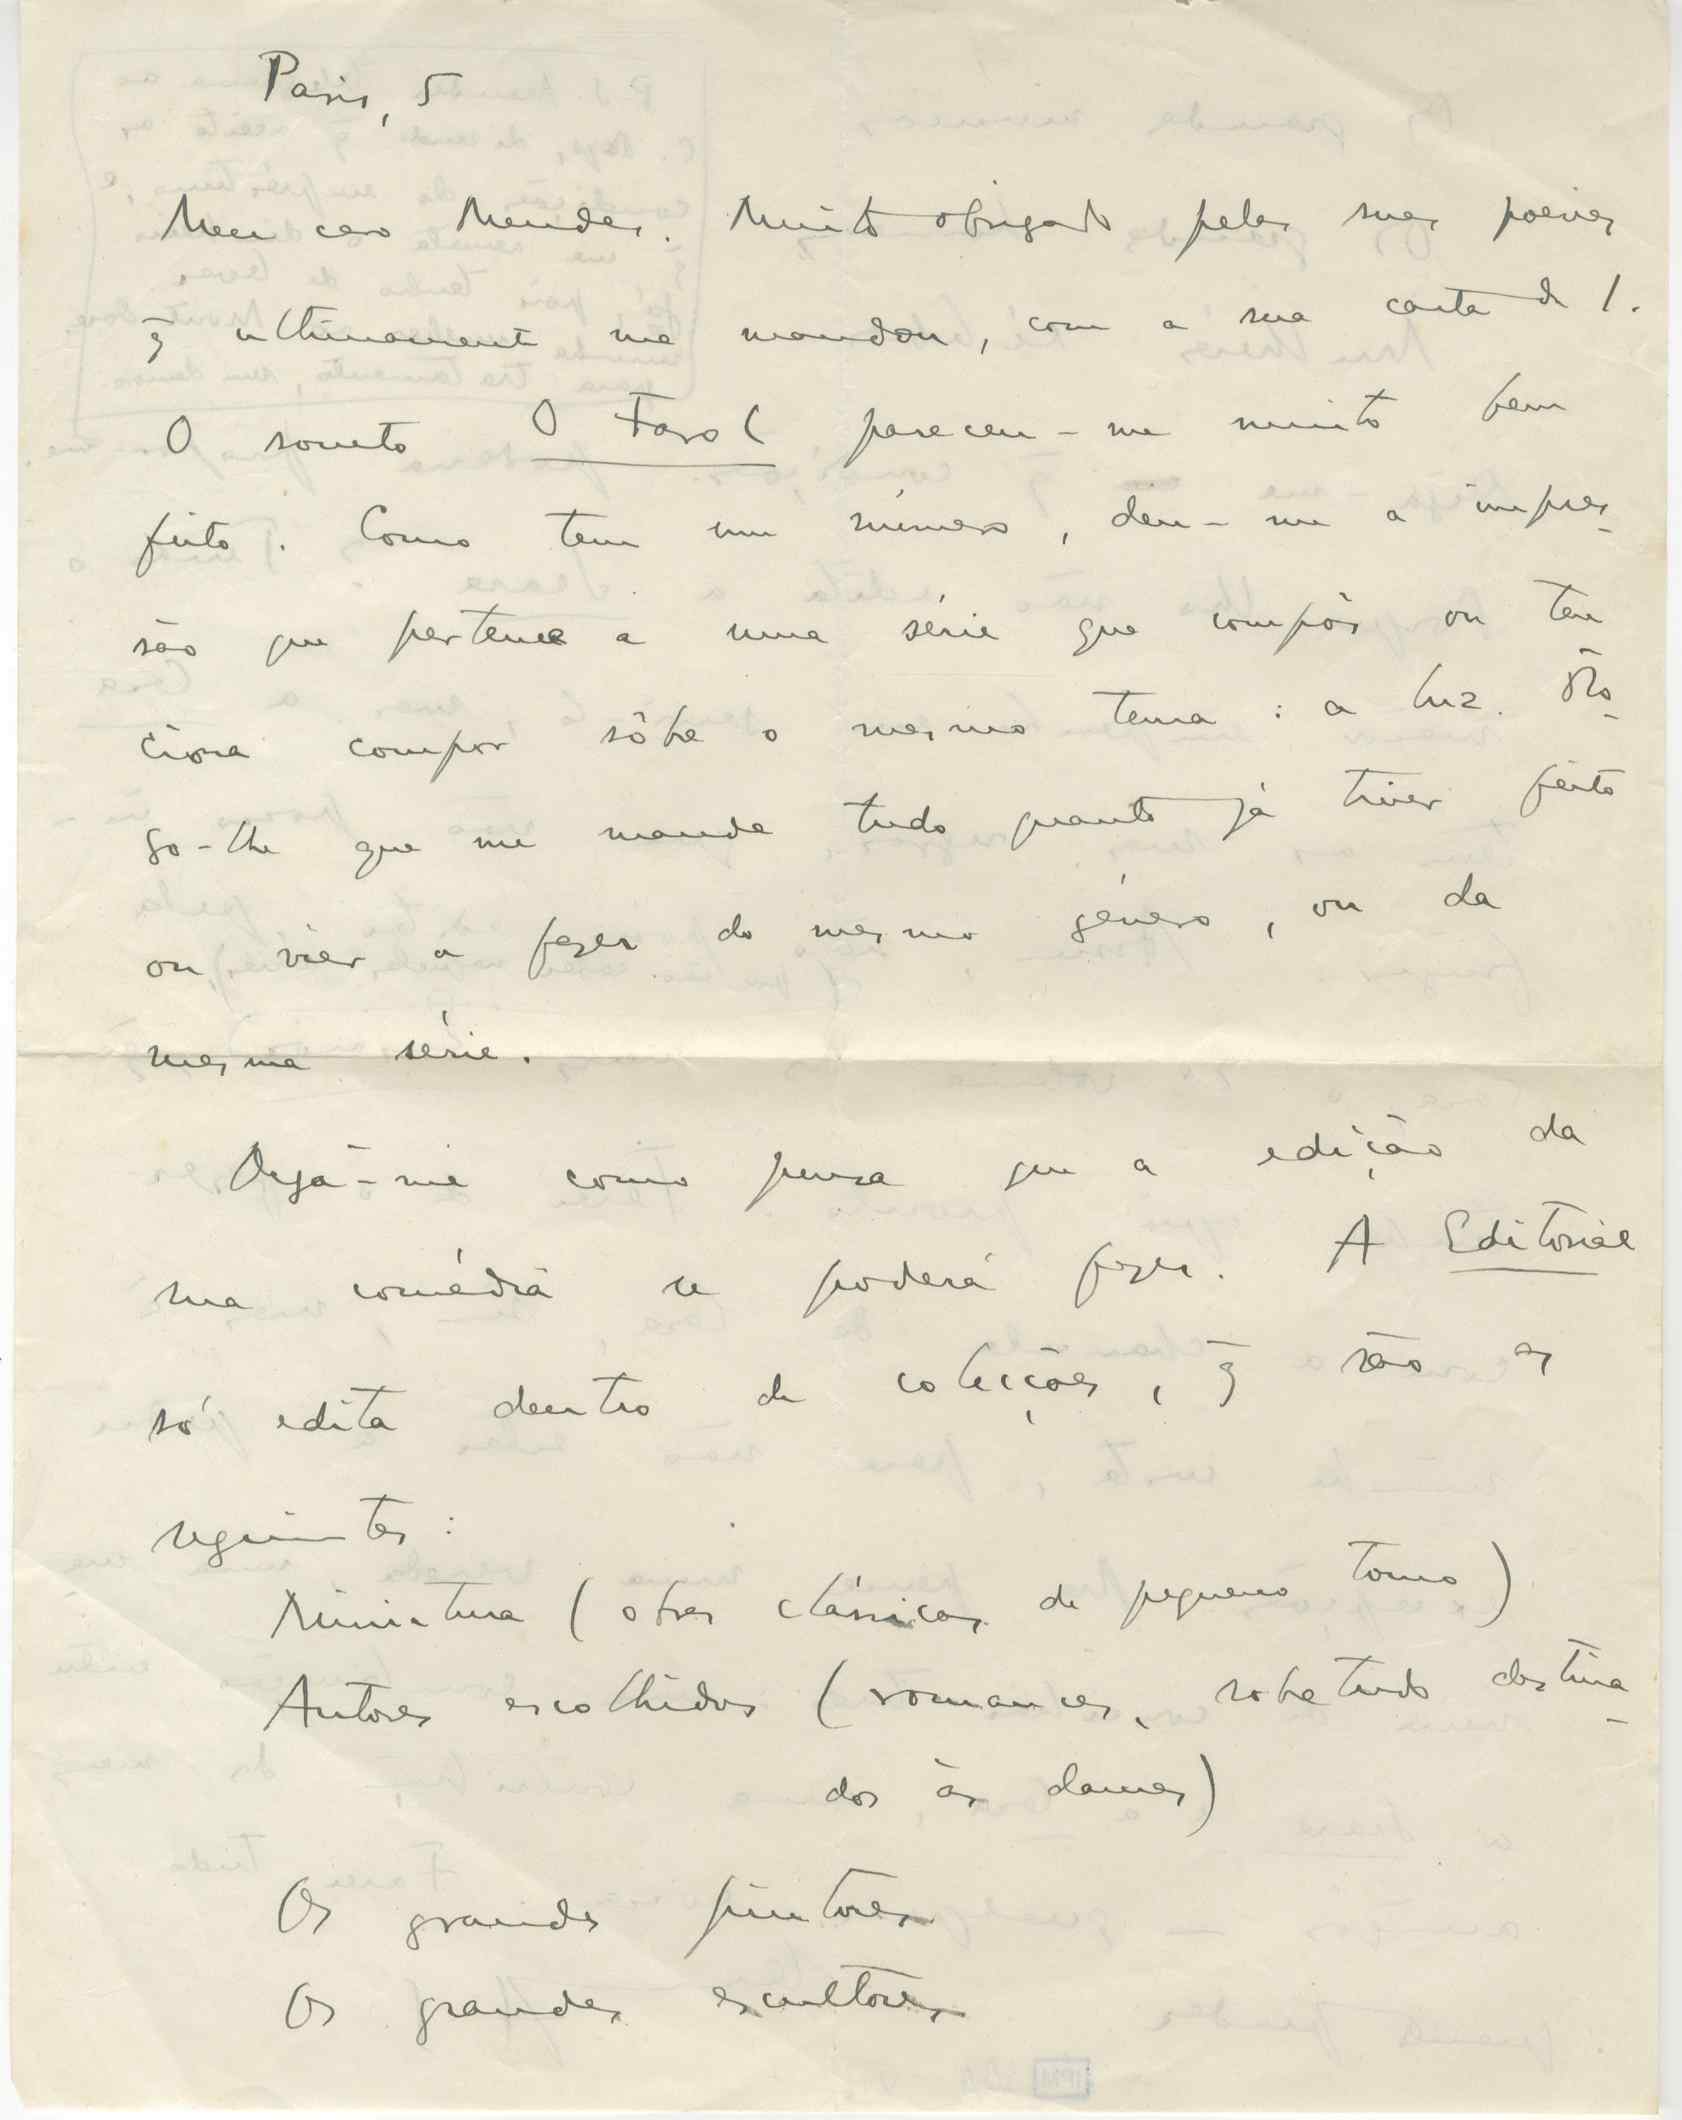 Paris, 5
Meu caro Mendes. Muito obrigado pelas suas poesias
q̄ ultimamente me mandou, com a sua carta de 1.
O soneto O Farol pareceu-me muito bem
feito. Como tem um número, deu-me a impres-
são que pertence a uma série que compôs ou ten
ciona compor sôbre o mesmo tema: a luz. Ro-
go-lhe que me mande tudo quanto já tiver feito
ou vier a fazer do mesmo género, ou da
mesma série.
Diga-me como pensa que a edição da
sua comédia se poderá fazer. A Editorial
só edita dentro de colecções, q̄ são as
seguintes:
Miniatura (obras clássicas de pequeno tomo)
Autores escolhidos (romances, sobretudo destina-
dos às damas)
Os grandes pintores
Os grandes escultores